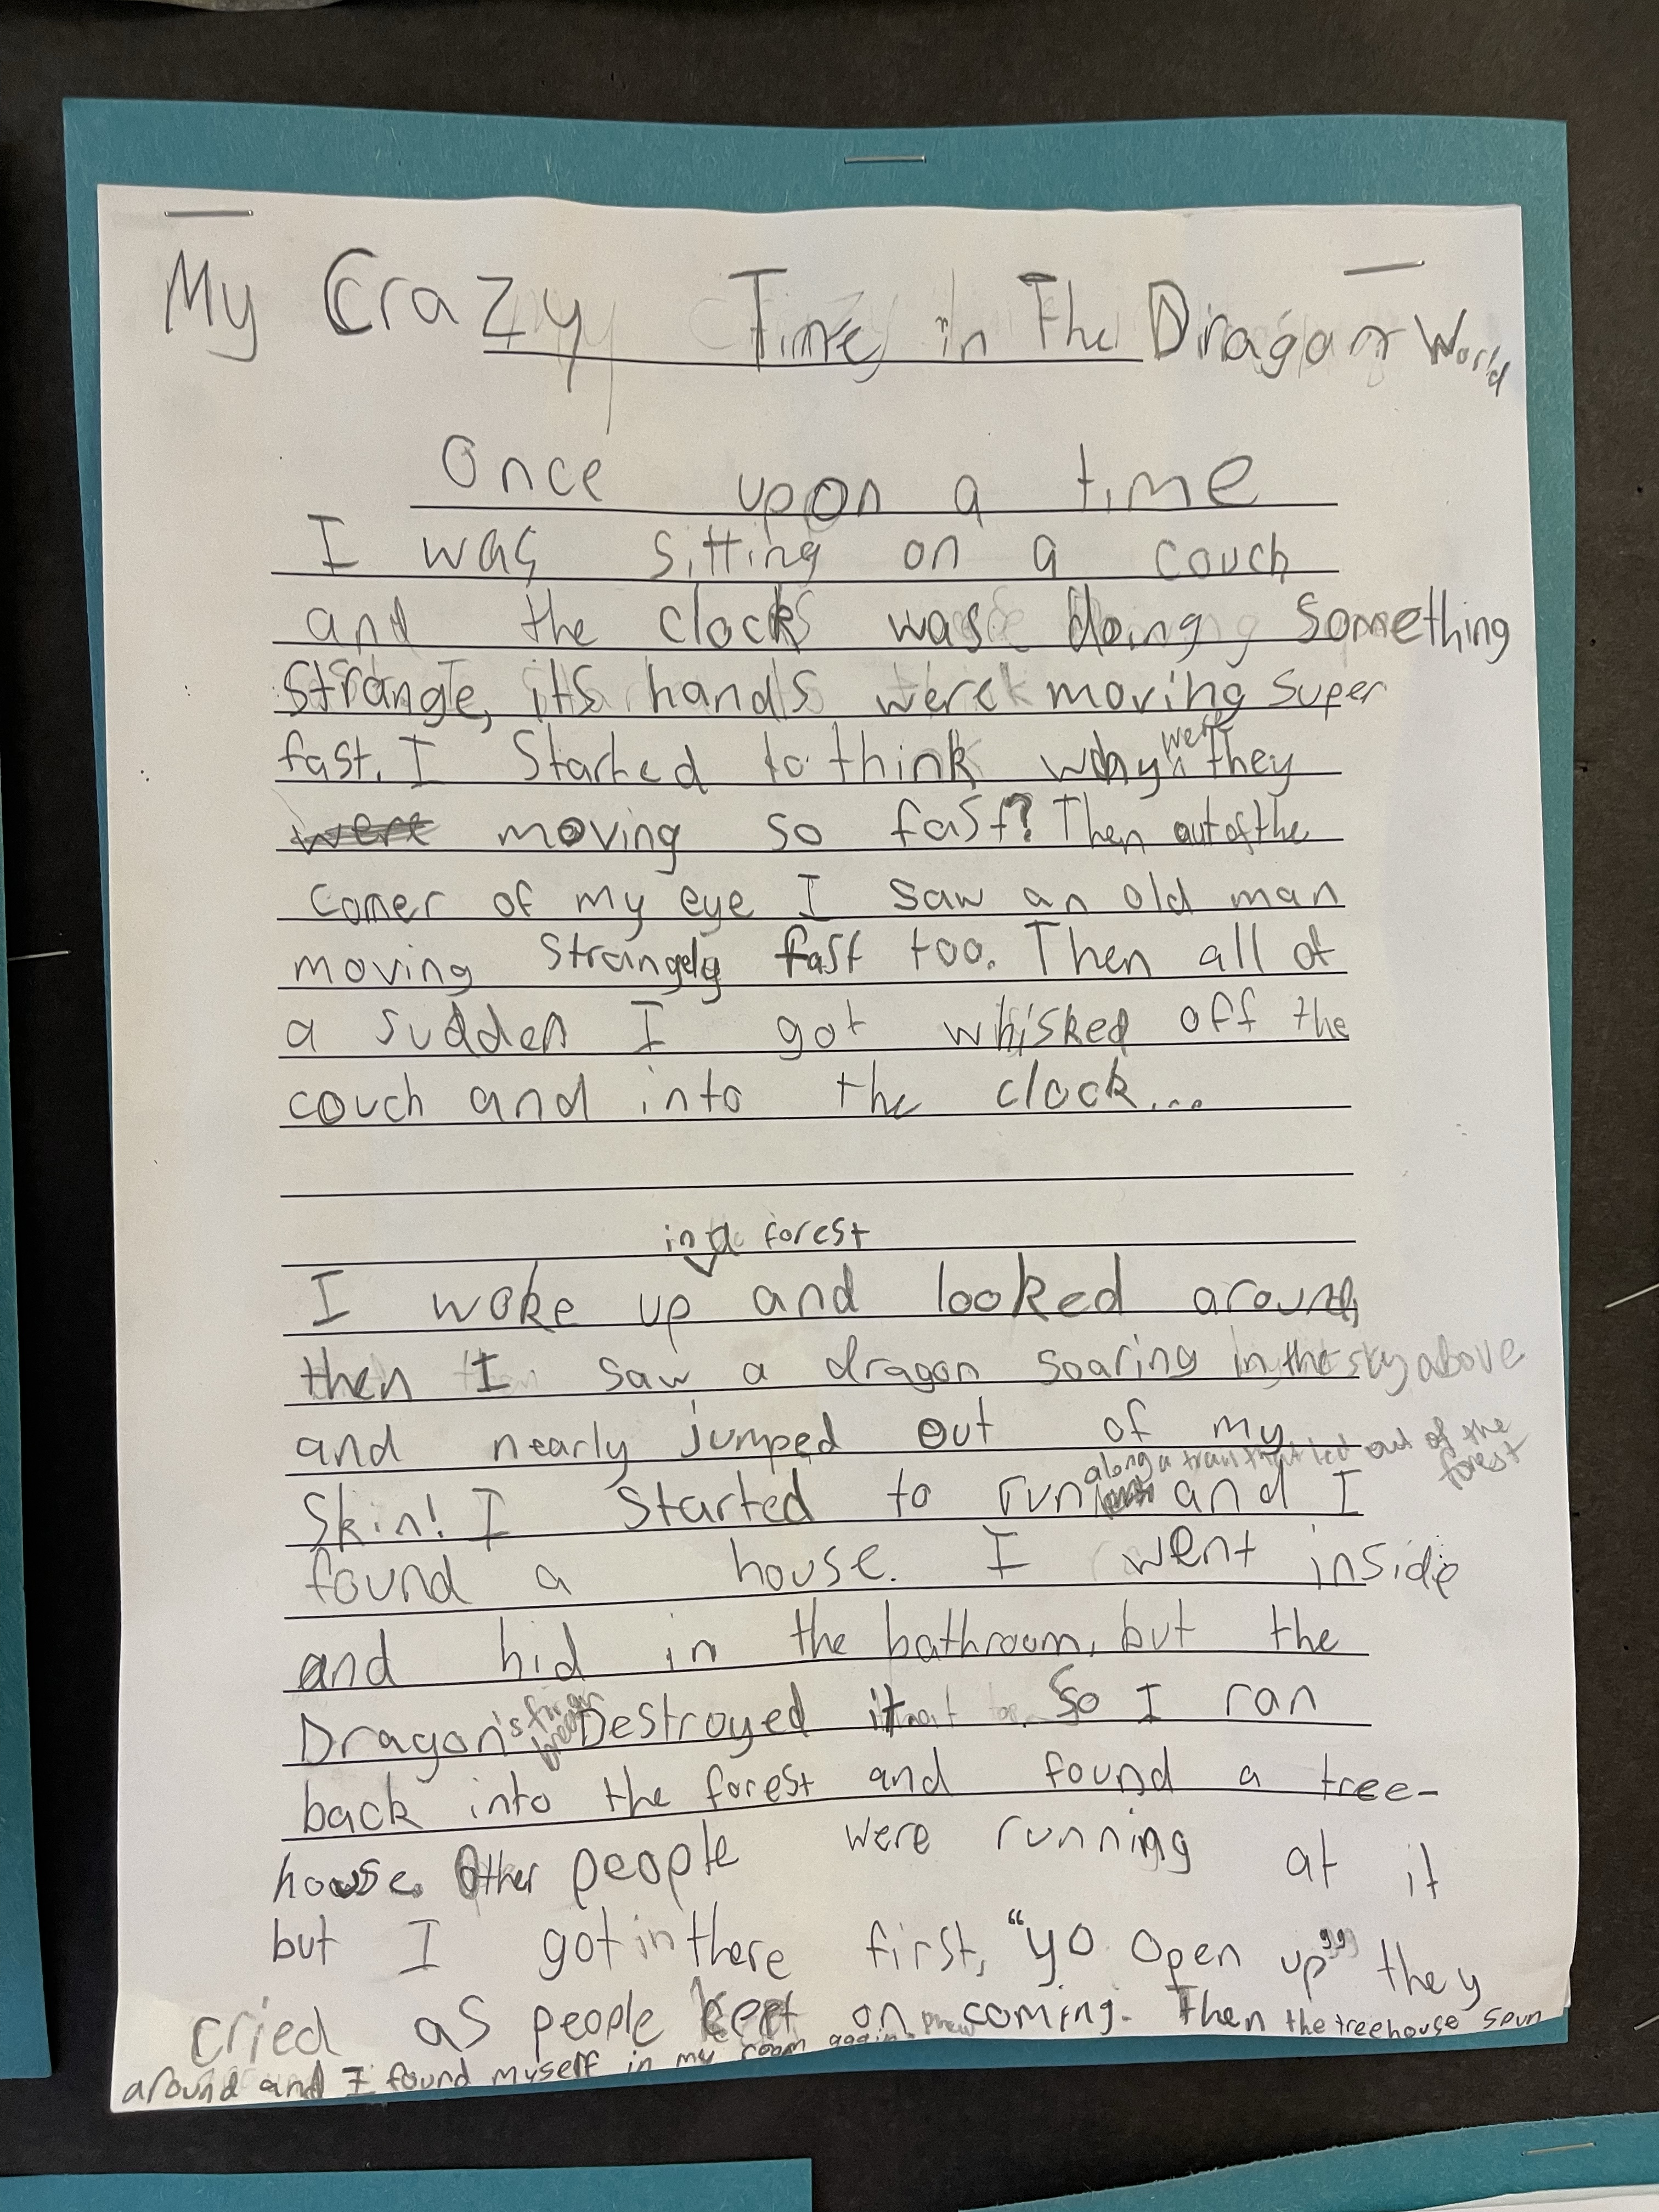 My Crazy Time in The Dragon World
Once upon a time
I was sitting on a couch
and the clock was doing something
strange, its hands were moving super
fast. I Started to think why were they
were moving so fast? Then out of the
corner of my eye I saw an old man
moving strangely fast too. Then all of
a sudden I got whisked off the
couch and into the clock...
in a forest
I woke up and looked around,
then I saw a dragon soaring in the sky above
and nearly jumped out of my
along a trail that led out of the forest
Skin! I Started to run and I
found a house. I went inside
and hid in the bathroom, but the
Dragon's fire breath Destroyed it. So I ran
back into the forest and found a tree-
house. Other people were running at it
but I got in there first, "yo open up" they
cried as people kept on coming. Then the treehouse spun
around and I found myself in my room again. phew